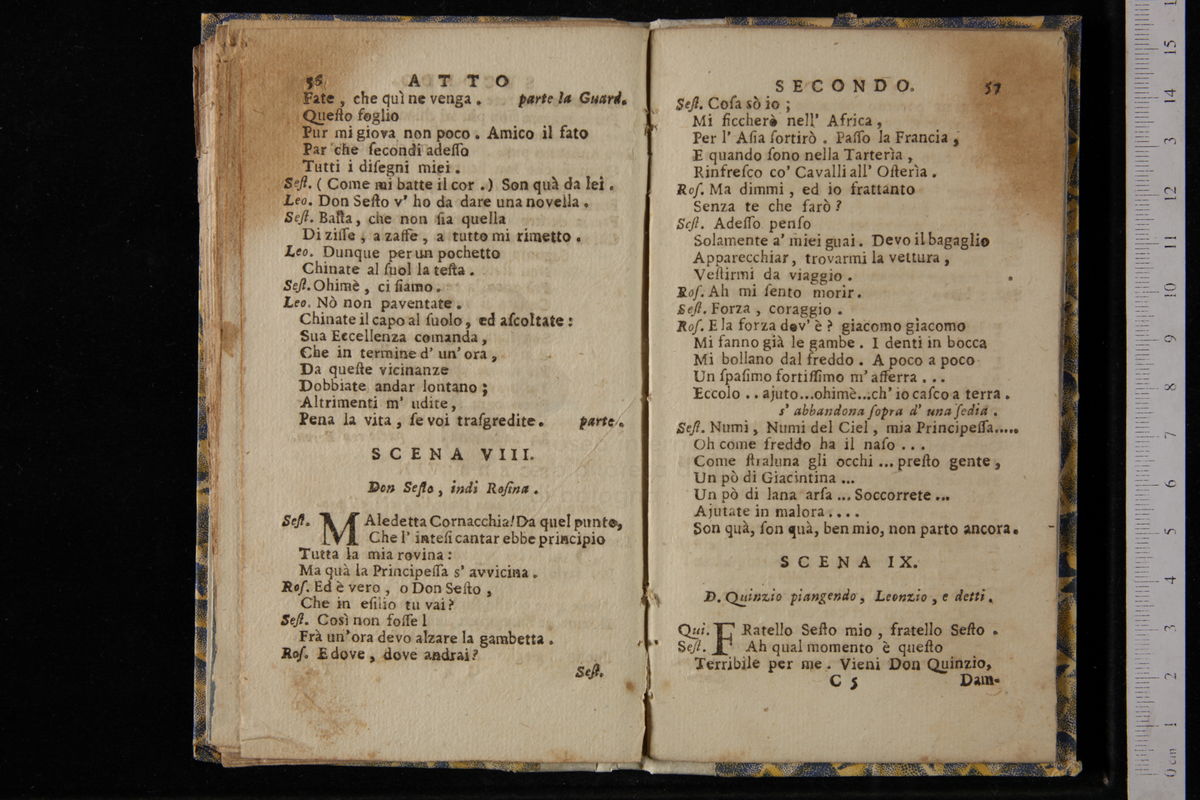 56 ATTO
Fate, che quì ne venga. parte la Guard.
Queſto foglio
Pur mi giova non poco. Amico il fato
Par che ſecondi adeſſo
Tutti i diſegni miei.
Seſt. (Come mi batte il cor.) Son quà da lei.
Leo. Don Seſto v' ho da dare una novella.
Seſt. Baſta, che non ſia quella
Di ziffe, a zaffe, a tutto mi rimetto.
Leo. Dunque per un pochetto
Chinate al ſuol la teſta.
Seſt. Ohimè, ci ſiamo.
Leo. Nò non paventate.
Chinate il capo al ſuolo, ed aſcoltate:
Sua Eccellenza comanda,
Che in termine d' un' ora,
Da queſte vicinanze
Dobbiate andar lontano;
Altrimenti m' udite,
Pena la vita, ſe voi traſgredite. parte.
SCENA VIII.
Don Seſto, indi Roſina.
Seſt. MAledetta Cornacchia! Da quel punto,
Che l' inteſi cantar ebbe principio
Tutta la mia rovina:
Ma quà la Principeſſa s' avvicina.
Roſ. Ed è vero, o Don Seſto,
Che in eſilio tu vai?
Seſt. Così non foſſe!
Frà un'ora devo alzare la gambetta.
Roſ. E dove, dove andrai?
Seſt.
SECONDO. 57
Seſt. Coſa sò io;
Mi ficcherò nell' Africa,
Per l' Aſia ſortirò. Paſſo la Francia,
E quando ſono nella Tarterìa,
Rinfreſco co' Cavalli all' Oſterìa.
Roſ. Ma dimmi, ed io frattanto
Senza te che farò?
Seſt. Adeſſo penſo
Solamente a' miei guai. Devo il bagaglio
Apparecchiar, trovarmi la vettura,
Veſtirmi da viaggio.
Roſ. Ah mi ſento morir.
Seſt. Forza, coraggio.
Roſ. E la forza dov' è? giacomo giacomo
Mi fanno già le gambe. I denti in bocca
Mi bollano dal freddo. A poco a poco
Un ſpaſimo fortiſſimo m' afferra...
Eccolo.. ajuto...ohimè...ch' io caſco a terra.
s' abbandona ſopra d' una ſedia.
Seſt. Numi, Numi del Ciel, mia Principeſſa.....
Oh come freddo ha il naſo...
Come ſtraluna gli occhi... preſto gente,
Un pò di Giacintina...
Un pò di lana arſa... Soccorrete...
Ajutate in malora....
Son quà, ſon quà, ben mio, non parto ancora.
SCENA IX.
D. Quinzio piangendo, Leonzio, e detti.
Qui. FRatello Seſto mio, fratello Seſto.
Seſt. Ah qual momento è queſto
Terribile per me. Vieni Don Quinzio,
C 5 Dam-